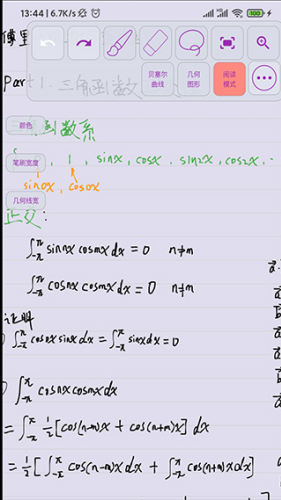 13:44 | 6.7K/s
100
傅里
Part 1. 三角函数
贝塞尔曲线
几何图形
阅读模式
颜色
函数系
笔刷宽度
, 1 , sinx, cosx, sin2x, cos2x, ..
sin0x, cos0x
几何线宽
正交:
∫_{-π}^{π} sinnx cosmx dx = 0 n≠m
∫_{-π}^{π} cosnx cosmx dx = 0 n≠m
证明
∫_{-π}^{π} cosnx sinx dx = ∫_{-π}^{π} sinx dx = 0
∫_{-π}^{π} cosnx cosmx dx
= ∫_{-π}^{π} 1/2 [cos(n-m)x + cos(n+m)x] dx
= 1/2 [∫_{-π}^{π} cos(n-m)x dx + ∫_{-π}^{π} cos(n+m)x dx]